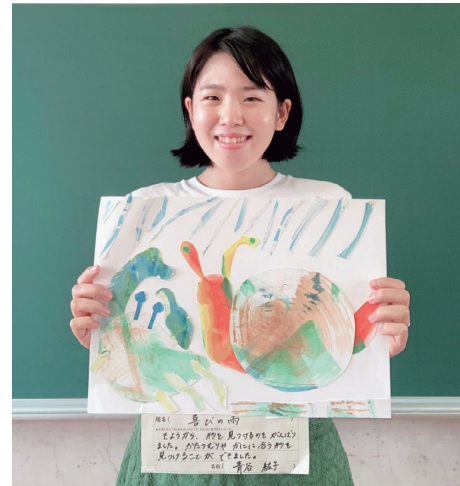 題名( 喜びの雨 )
もようから、形を見つけるのをがんばり
ました。かたつむりや かにに 合う形を
見つけることが できました。
名前( 青谷 紘子 )